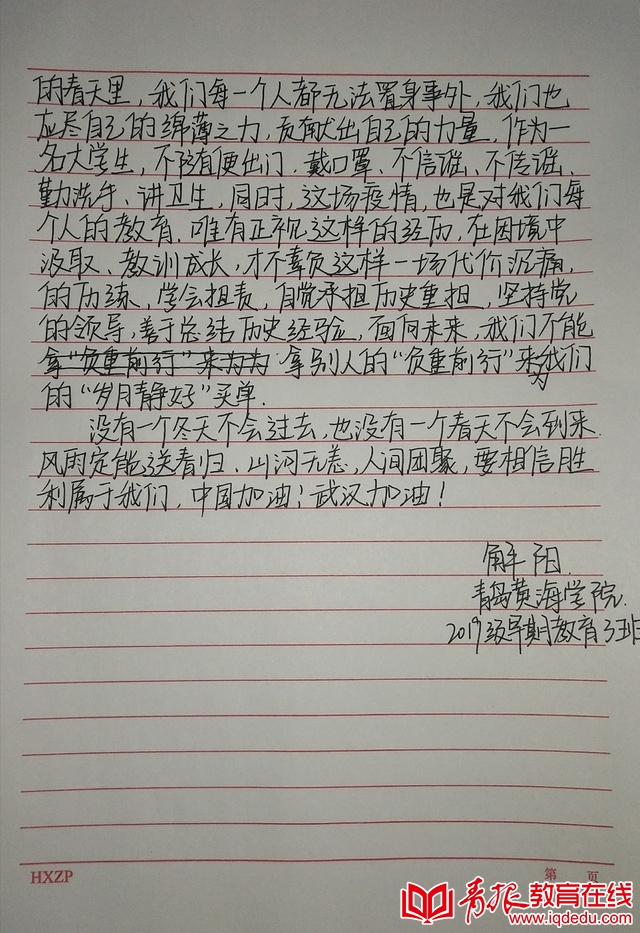 的春天里，我们每一个人都无法置身事外，我们也
应尽自己的绵薄之力，贡献出自己的力量，作为一
名大学生，不随便出门、戴口罩、不信谣、不传谣、
勤洗手、讲卫生，同时，这场疫情，也是对我们每
个人的教育，唯有正视这样的经历，在困境中
汲取、教训成长，才不辜负这样一场代价沉痛
的历练，学会担责，自觉承担历史重担，坚持党
的领导，善于总结历史经验，面向未来，我们不能
拿“负重前行”来为为 拿别人的“负重前行”来为我们
的“岁月静好”买单。
没有一个冬天不会过去，也没有一个春天不会到来
风雨定能送春归，山河无恙，人间团聚，要相信胜
利属于我们，中国加油！武汉加油！
解阳
青岛黄海学院
2019级早期教育3班
HXZP
第 页
青报教育在线
www.iqdedu.com